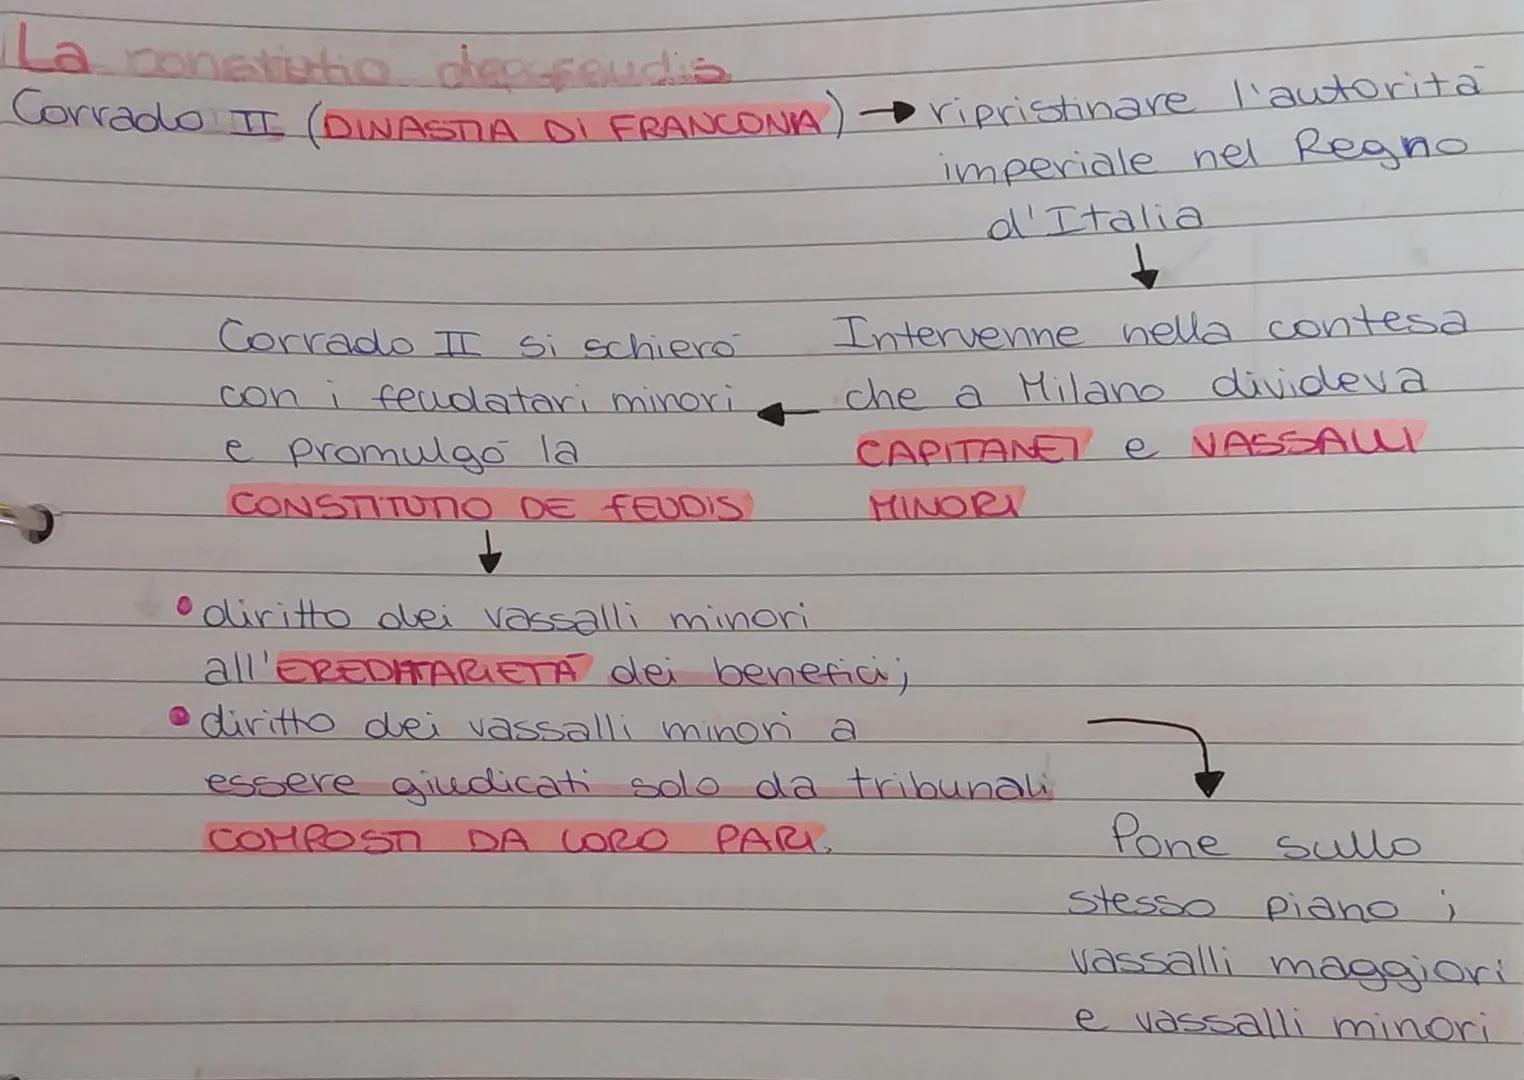 La constitutio de feudis
Corrado II (DINASTIA DI FRANCONIA) → ripristinare l'autorità
imperiale nel Regno
d'Italia
↓
Intervenne nella contesa
che a Milano divideva
CAPITANEI e VASSALLI
MINORI
←
Corrado II si schierò
con i feudatari minori
e promulgò la
CONSTITUTIO DE FEUDIS
↓
• diritto dei vassalli minori
all'EREDITARIETÀ dei benefici;
• diritto dei vassalli minori a
essere giudicati solo da tribunali
COMPOSTI DA LORO PARI.
Pone sullo
stesso piano i
vassalli maggiori
e vassalli minori